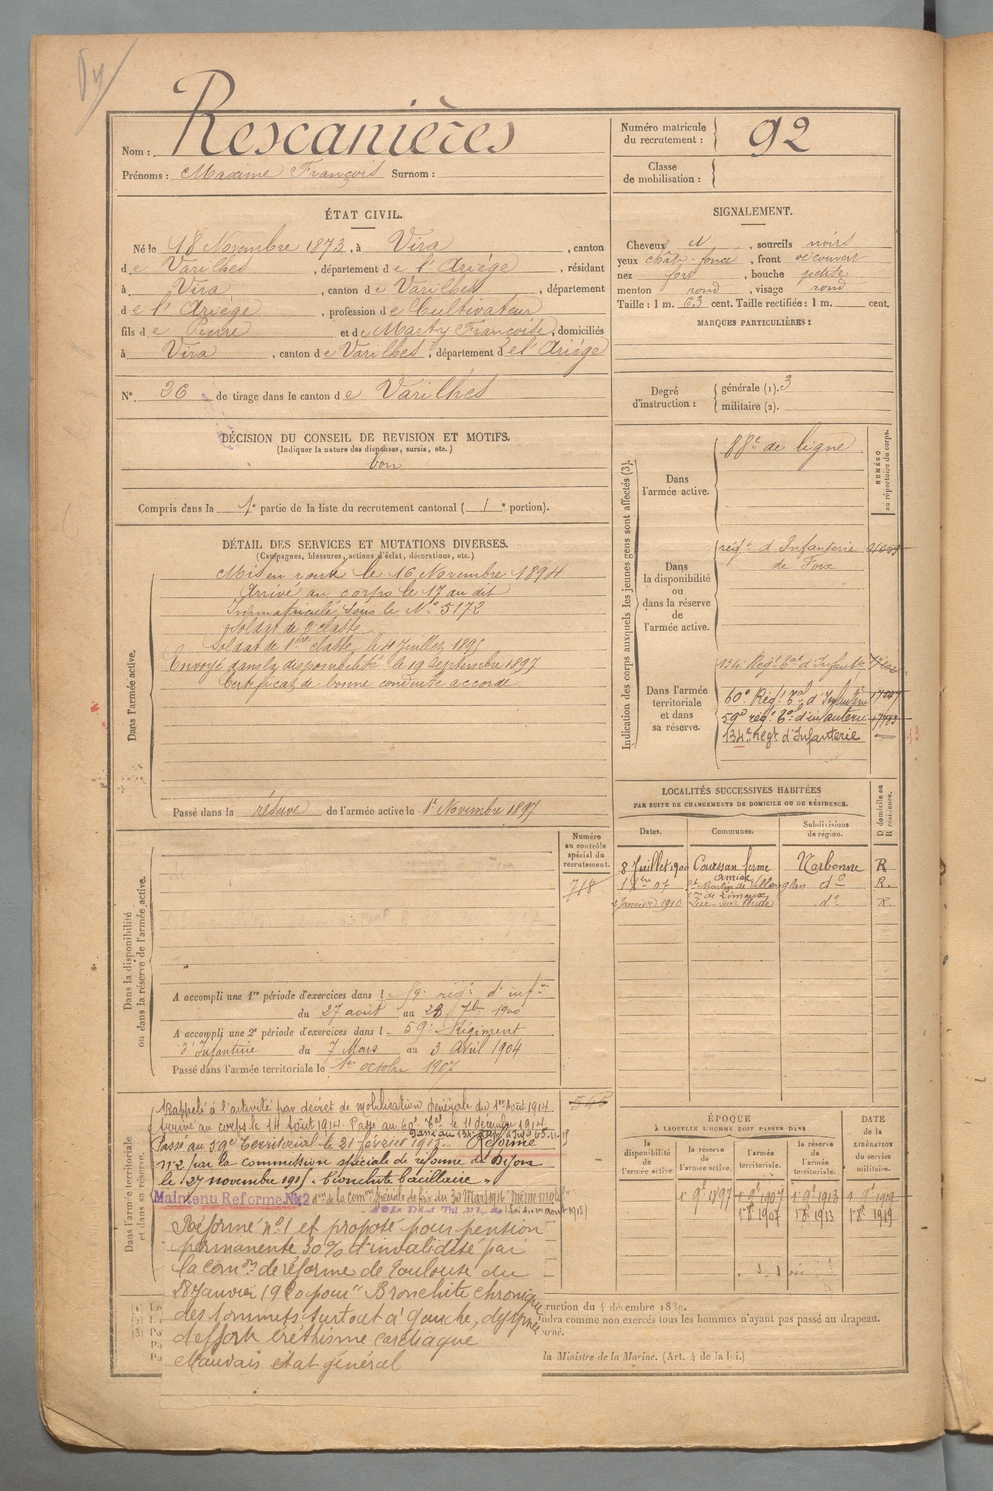 Nom : Rescanières
Prénoms : Maxime François Surnom :
Numéro matricule du recrutement : 92
Classe de mobilisation :
ÉTAT CIVIL.
Né le 18 Novembre 1873, à Vira, canton
de Varilhes, département de l'Ariége, résidant
à Vira, canton de Varilhes, département
de l'Ariége, profession de Cultivateur
fils de Pierre et de Marty Françoise, domiciliés
à Vira, canton de Varilhes, département de l'Ariége
N° 36 de tirage dans le canton de Varilhes
SIGNALEMENT.
Cheveux N, sourcils noirs
yeux chât-foncé, front découvert
nez fort, bouche petite
menton rond, visage rond
Taille : 1 m. 63 cent. Taille rectifiée : 1 m. cent.
MARQUES PARTICULIÈRES :
Degré d'instruction : générale (1). 3
militaire (2).
DÉCISION DU CONSEIL DE REVISION ET MOTIFS.
(Indiquer la nature des dispenses, sursis, etc.)
bon
Compris dans la 1e partie de la liste du recrutement cantonal ( 1 e portion).
DÉTAIL DES SERVICES ET MUTATIONS DIVERSES.
(Campagnes, blessures, actions d'éclat, décorations, etc.)
Dans l'armée active.
Mis en route le 16 Novembre 1894
Arrivé au corps le 17 au dit
Immatriculé sous le N° 5172
Soldat de 2e classe
Soldat de 1ère classe le 4 Juillet 1895
Envoyé dans la disponibilité le 19 Septembre 1897
Certificat de bonne conduite accordé
Passé dans la réserve de l'armée active le 1er Novembre 1897
Indication des corps auxquels les jeunes gens sont affectés (3).
NUMÉRO au répertoire du corps.
Dans l'armée active.
88e de ligne
Dans la disponibilité ou dans la réserve de l'armée active.
régt d'Infanterie
de Foix
Dans l'armée territoriale et dans sa réserve.
134 Régt Tal d'Infant
60e Régt Tal d'Infanterie
59e régt Tal d'infanterie
134e Régt d'Infanterie
LOCALITÉS SUCCESSIVES HABITÉES
PAR SUITE DE CHANGEMENTS DE DOMICILE OU DE RÉSIDENCE.
Dates. Communes. Subdivisions de région. D domicile ou R résidence.
8 Juillet 1900 Coursan ferme Narbonne R
St Martin de Villereglan do R.
cne de Limoux
Janvier 1910 Luc-sur-Aude do R
Dans la disponibilité ou dans la réserve de l'armée active.
Numéro au contrôle spécial du recrutement.
718
A accompli une 1re période d'exercices dans le 59e régt d'infie
du 27 août au 23 7bre 1900
A accompli une 2e période d'exercices dans le 59e Régiment
d'Infanterie du 7 Mars au 3 Avril 1904
Passé dans l'armée territoriale le 1er octobre 1907
Dans l'armée territoriale et dans sa réserve.
Rappelé à l'activité par décret de mobilisation Générale du 1er Août 1914.
Arrivé au corps le 14 Août 1914. Passé au 60e Tal le 11 décembre 1914
Passé au 59e Territorial le 21 février 1915. Réformé
n° 2 par la commission spéciale de réforme de Dijon
le 27 novembre 1915 "bronchite bacillaire"
Maintenu Réforme N° 2 don de la comon spéciale de du 30 Mars 1916 "même motif"
Réformé n° 1 et proposé pour pension
permanente 30 % d'invalidité par
la comon de réforme de Toulouse du
28 Janvier 1920 pour "Bronchite chronique
des sommets surtout à gauche, dyspnée
d'effort éréthisme cardiaque
Mauvais état général
ÉPOQUE
À LAQUELLE L'HOMME DOIT PASSER DANS
la disponibilité de l'armée active. la réserve de l'armée active. l'armée territoriale. la réserve de l'armée territoriale. DATE de la LIBÉRATION du service militaire.
1 9bre 1897 1 9bre 1907 1 9bre 1913 1 9bre 1919
1 8bre 1907 1 8bre 1913 1 8bre 1919
ruction du 4 décembre 1889.
ndra comme non exercés tous les hommes n'ayant pas passé au drapeau.
urné.
lu Ministre de la Marine. (Art. 4 de la loi.)